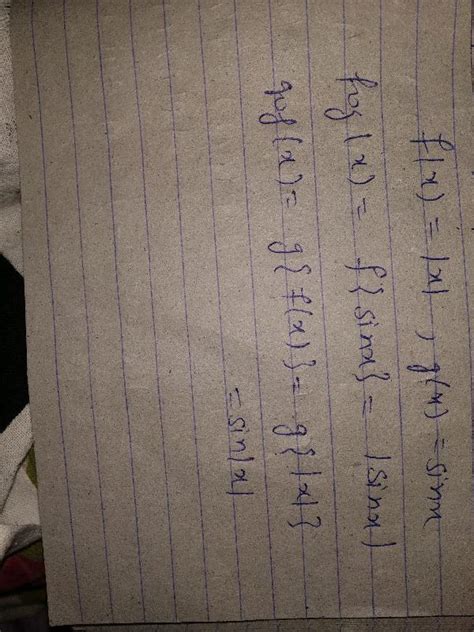 f(x) = |x| , g(x) = sinx
fog(x) = f{sinx} = |sinx|
gof(x) = g{f(x)} = g{|x|}
= sin|x|